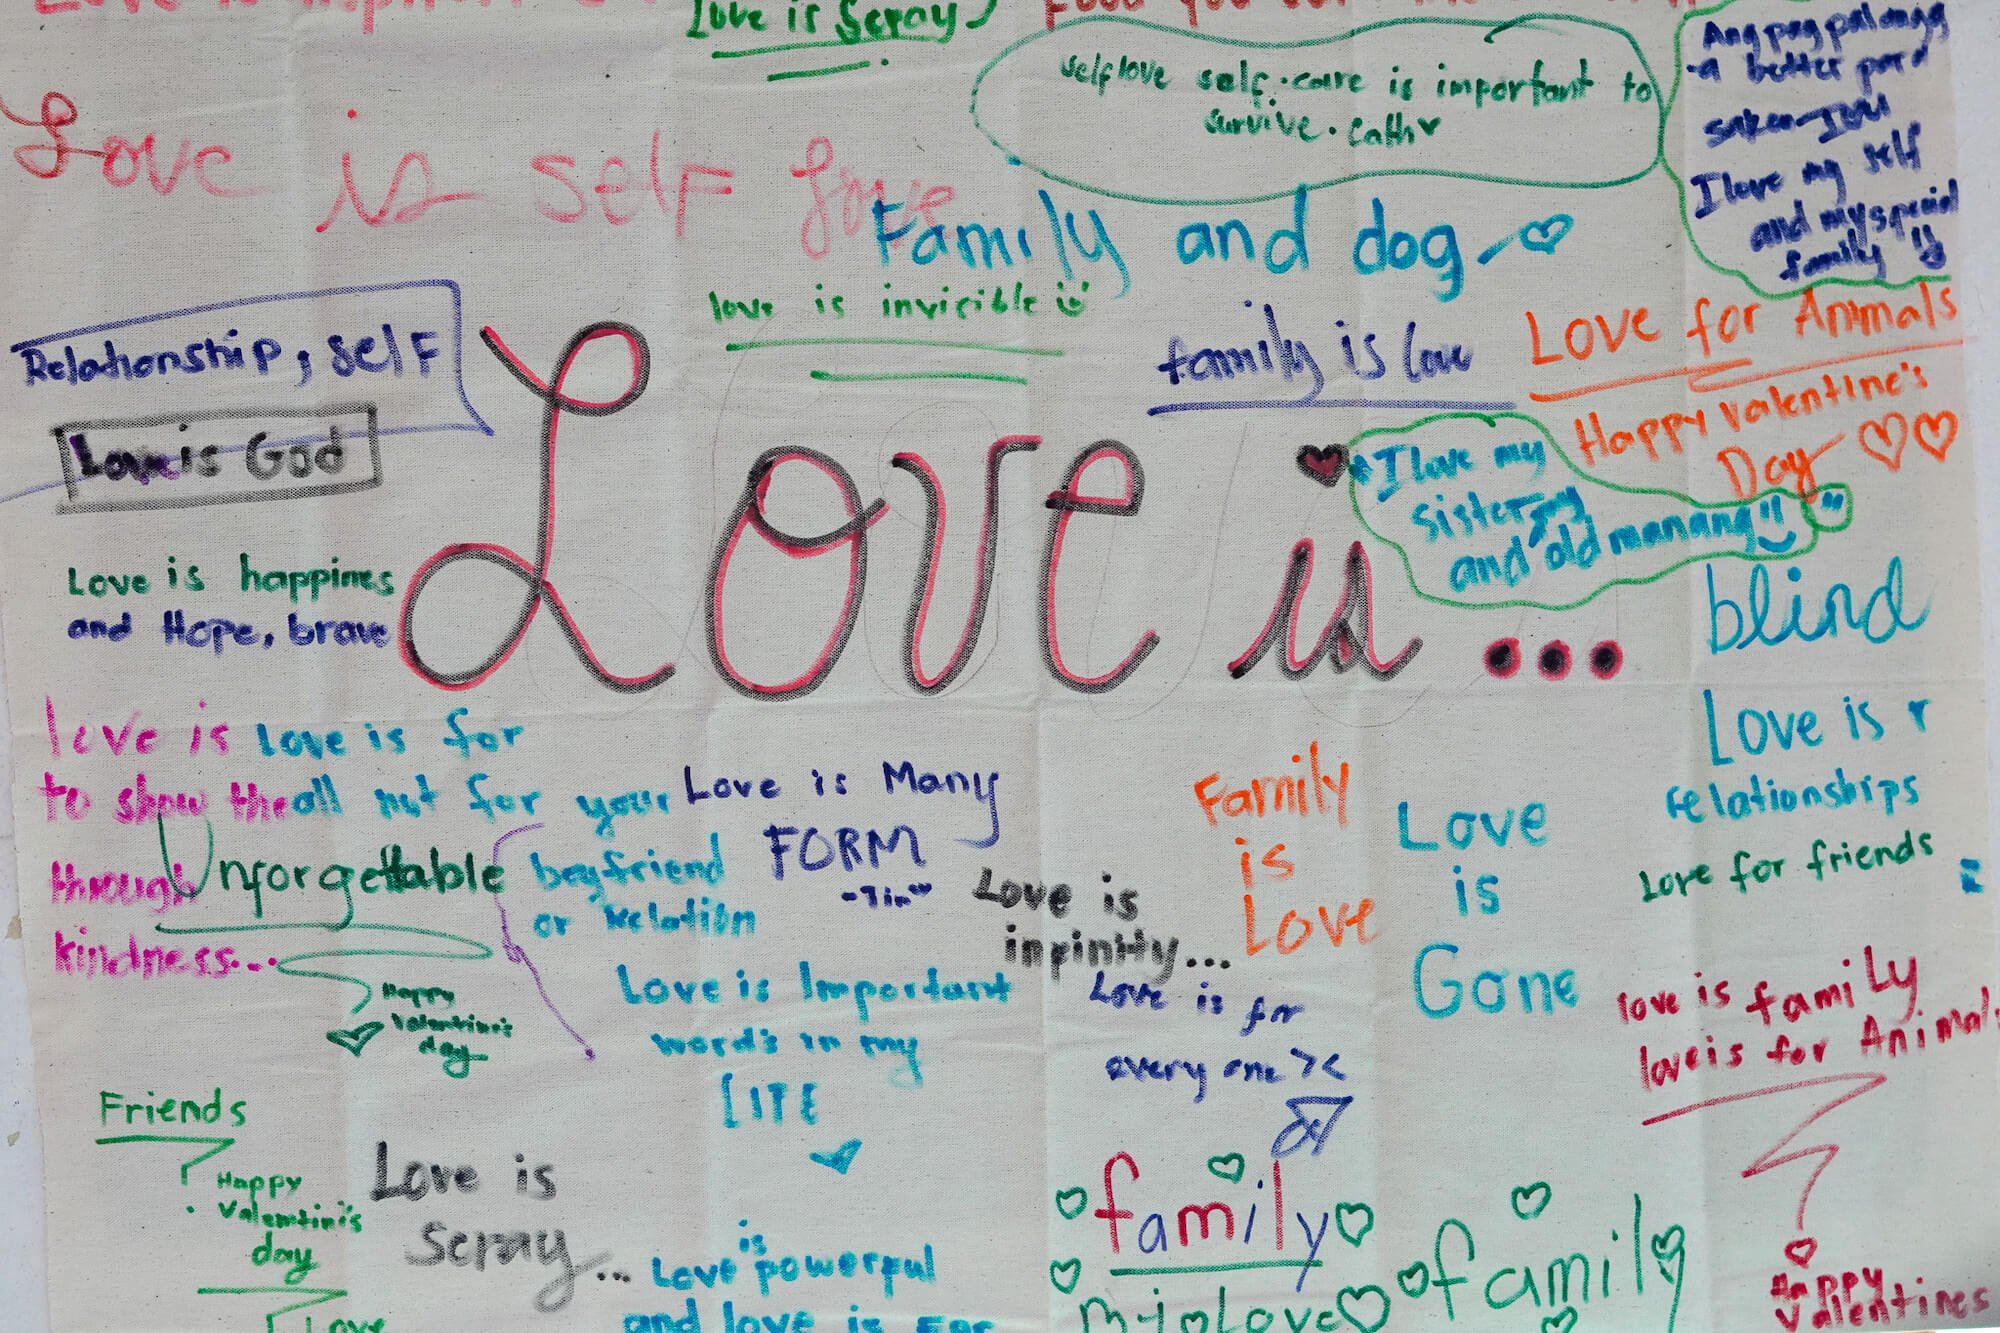 Love is
Love is Sepay
Food you
selflove self-care is important to
survive. Cath
Ang pag palangg
a better pard
saken
I love my self
and my special
family
Love is self love
Family and dog
love is invicible
Relationship, self
family is love
Love for Animals
Happy Valentine's
Day
Love is God
Love is ...
I love my
sister, my
and old manang
blind
Love is happines
and Hope, brave
love is
to show the
through
kindness...
Love is for
all not for your
boyfriend
or Relation
Unforgettable
Happy
Valentine's
day
Love is Many
FORM
-Tin
Love is
infinity...
Family
is
Love
Love
is
Gone
Love is r
relationships
Love for friends
Love is Important
words in my
LIFE
Love is for
every one ><
love is family
love is for Animal
Happy
Valentines
Friends
Happy
Valentini's
day
Love
Love is
Sepay...
is
Love powerful
and love is For
family
family